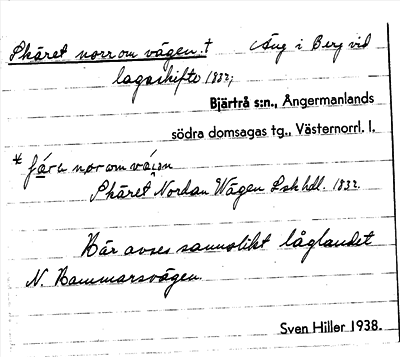 Skäret norr om vägen.† Äng i Berg vid
lagaskifte 1832;
Bjärtrå s:n., Ångermanlands
södra domsagas tg., Västernorrl. l.
norom
Skäret Nordan Wägen Lskhdl. 1832.
Här avses sannolikt låglandet
N. Hammarsvägen.
Sven Hiller 1938.